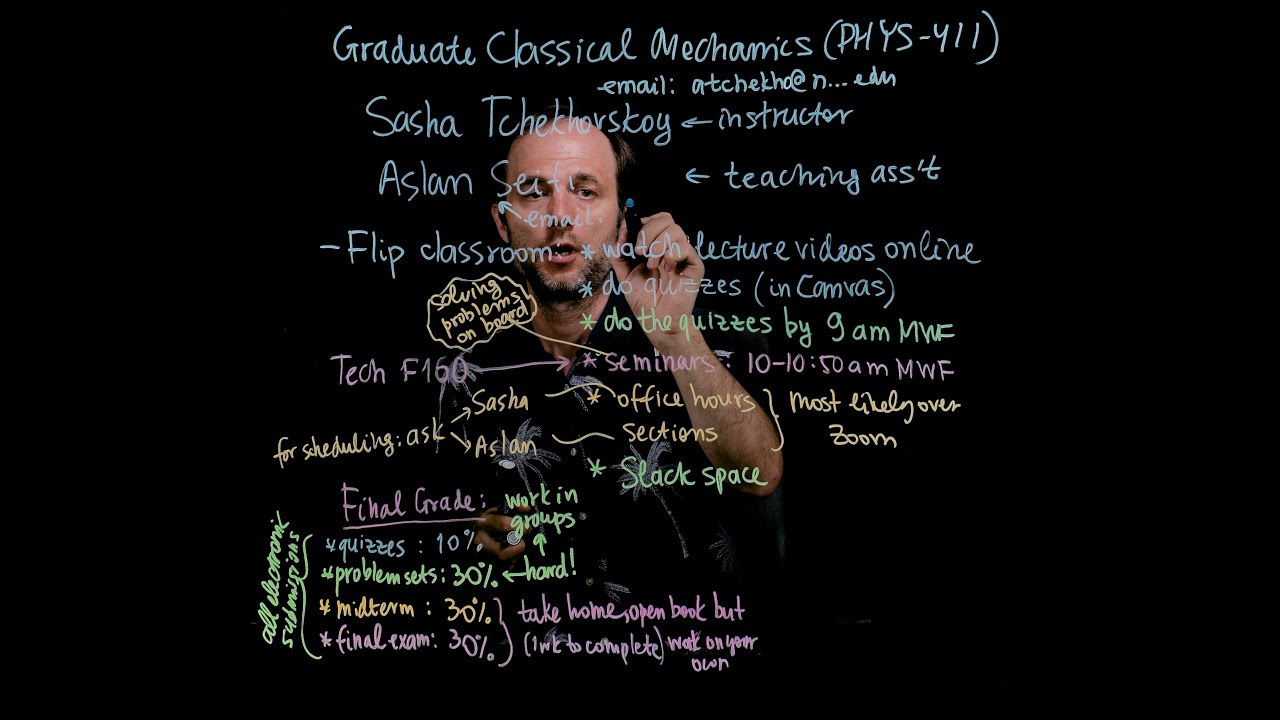 Graduate Classical Mechamics (PHYS-411)
email: atchekho@n...edu
Sasha Tchekhovskoy ← instructor
Aslan ← teaching ass't
email:
- Flip classroom: * watch lecture videos online
* do quizzes (in Canvas)
solving
problems
on board
* do the quizzes by 9 am MWF
Tech F160 → * seminars: 10-10:50 am MWF
Sasha * office hours } most likely over
for scheduling: ask
Aslan sections Zoom
* Slack space
Final Grade:
work in
groups
all electronic
submissions
* quizzes : 10%
* problem sets: 30% ← hard!
* midterm : 30% } take home, open book but
* final exam: 30% (1 wk to complete) work on your
own